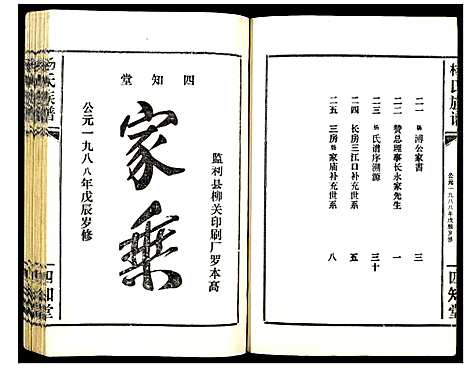 杨氏族谱
公元一九八八年戊辰岁修
四知堂
二一 杨溥公家書 三
二二 赞总理事长永家先生 一
二三 杨氏谱序溯源 三十
二四 长房三江口补充世系 五
二五 三房杨家庙补充世系 八
四知堂
家乘
公元一九八八年戊辰岁修
监利县柳关印刷厂罗本高
杨氏族谱
四知堂